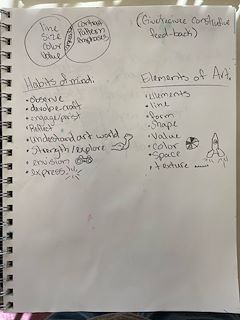 line
Size
Color
Value
Contrast
Pattern
emphasis
(Give/recieve constructive
feed-back)
Habits of mind:
• observe
• develop craft
• engage/persist
• Reflect
• understand art world
• Strength/explore
• envision
• express
Elements of Art:
• elements
• line
• form
• Shape
• Value
• Color
• Space
• texture